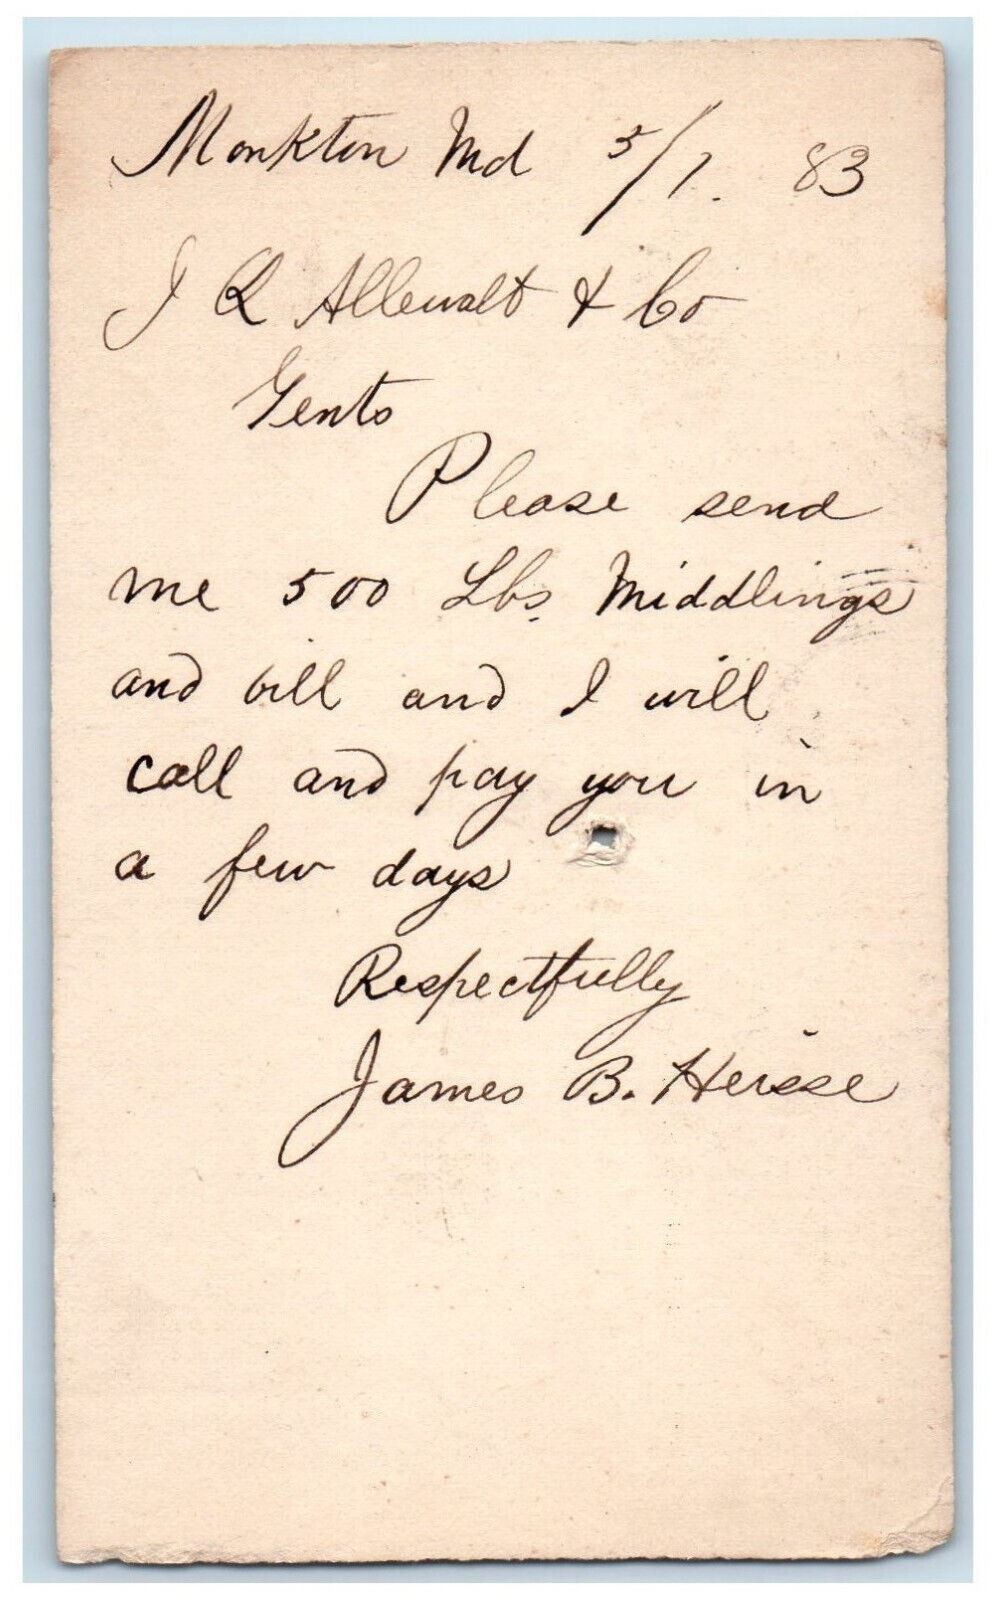 Monkton Md 5/1. 83
J Q Allewalt & Co
Gents
Please send
me 500 Lbs Middlings
and bill and I will
call and pay you in
a few days
Respectfully
James B. Heisse